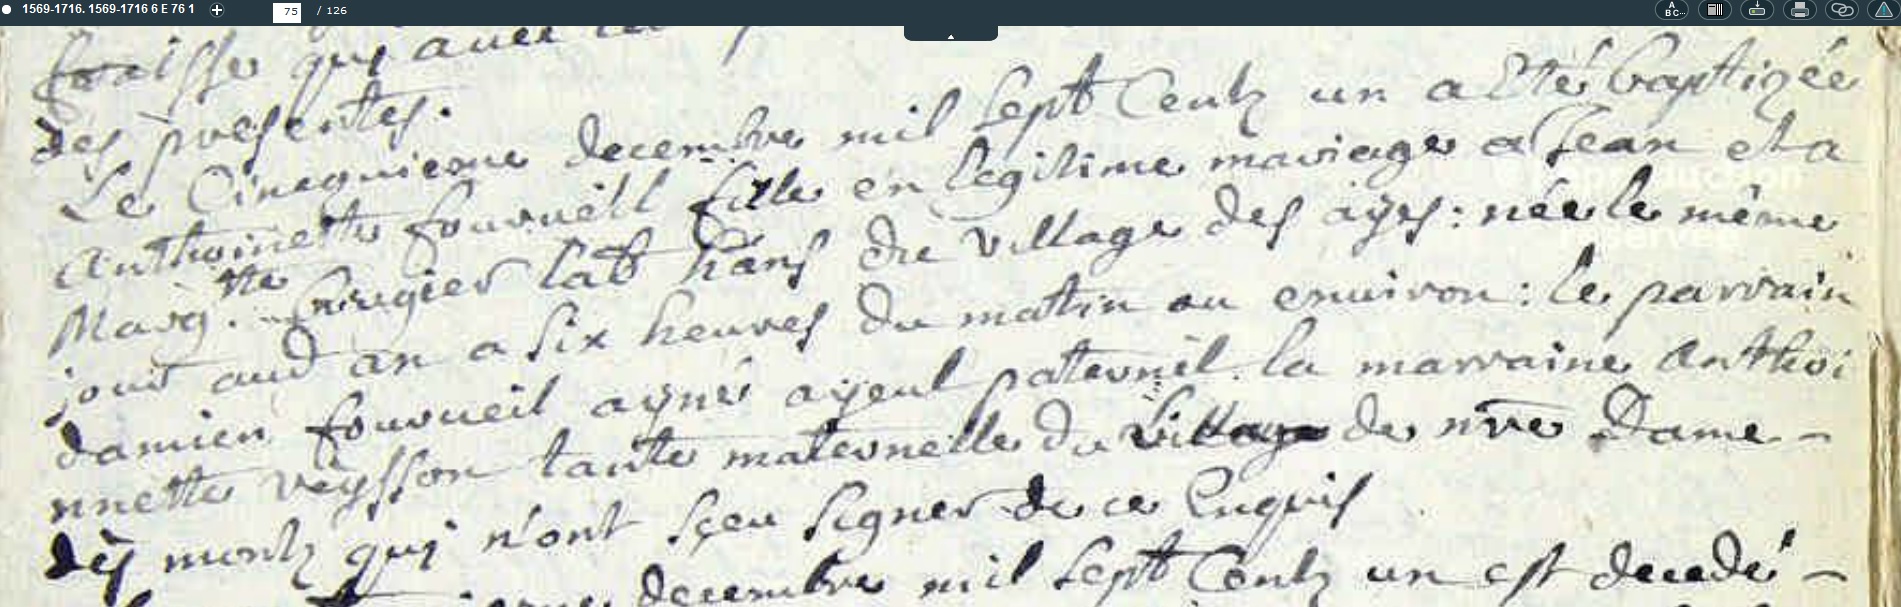 1569-1716. 1569-1716 6 E 76 1
75 / 126
qui avec
des presentes.
Le Cinquieme decembre mil sept Centz un a Eté baptizée
Anthoinette fourneill fille en legitime mariage a Jean et a
Marg.tte lab hans du village des ayes: née le même
jour aud an a six heures du mattin ou environ: le parrain
damien fourneil ayné ayeul paternel. la marraine Anthoi
nnette veysson tante maternelle du village de nre Dame
des montz qui n'ont sçeu signer de ce Enquis
decembre mil sept Centz un est decedé